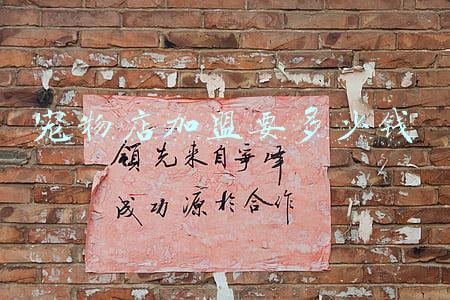 宠物店加盟要多少钱
领先来自争峰
成功源于合作